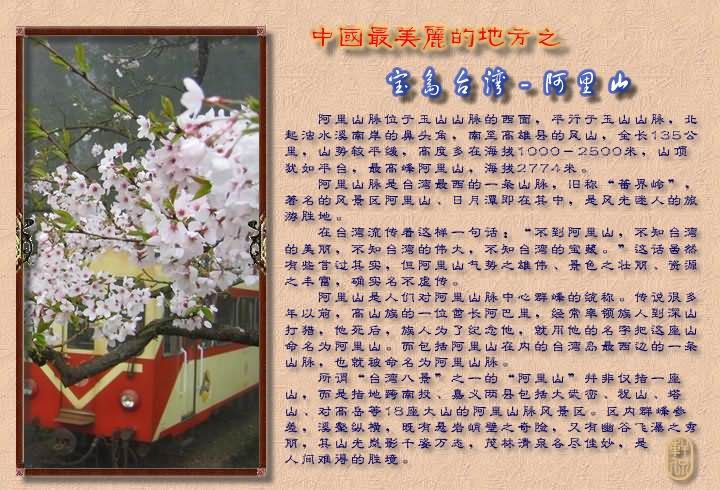 中國最美麗的地方之
宝岛台湾－阿里山
阿里山脉位于玉山山脉的西面，平行于玉山山脉，北
起浊水溪南岸的鼻头角，南至高雄县的凤山，全长135公
里，山势较平缓，高度多在海拔1000－2500米，山顶
犹如平台，最高峰阿里山，海拔2774米。
阿里山脉是台湾最西的一条山脉，旧称“番界岭”，
著名的风景区阿里山、日月潭即在其中，是风光迷人的旅
游胜地。
在台湾流传着这样一句话：“不到阿里山，不知台湾
的美丽，不知台湾的伟大，不知台湾的宝藏。”这话虽然
有些言过其实，但阿里山气势之雄伟、景色之壮丽、资源
之丰富，确实名不虚传。
阿里山是人们对阿里山脉中心群峰的统称。传说很多
年以前，高山族的一位酋长阿巴里，经常率领族人到深山
打猎，他死后，族人为了纪念他，就用他的名字把这座山
命名为阿里山。而包括阿里山在内的台湾岛最西边的一条
山脉，也就被命名为阿里山脉。
所谓“台湾八景”之一的“阿里山”并非仅指一座
山，而是指地跨南投、嘉义两县包括大武峦、祝山、塔
山、对高岳等18座大山的阿里山脉风景区。区内群峰参
差，溪壑纵横，既有悬岩峭壁之奇险，又有幽谷飞瀑之秀
丽，其山光岚影千姿万态，茂林清泉各尽佳妙，是
人间难得的胜境。